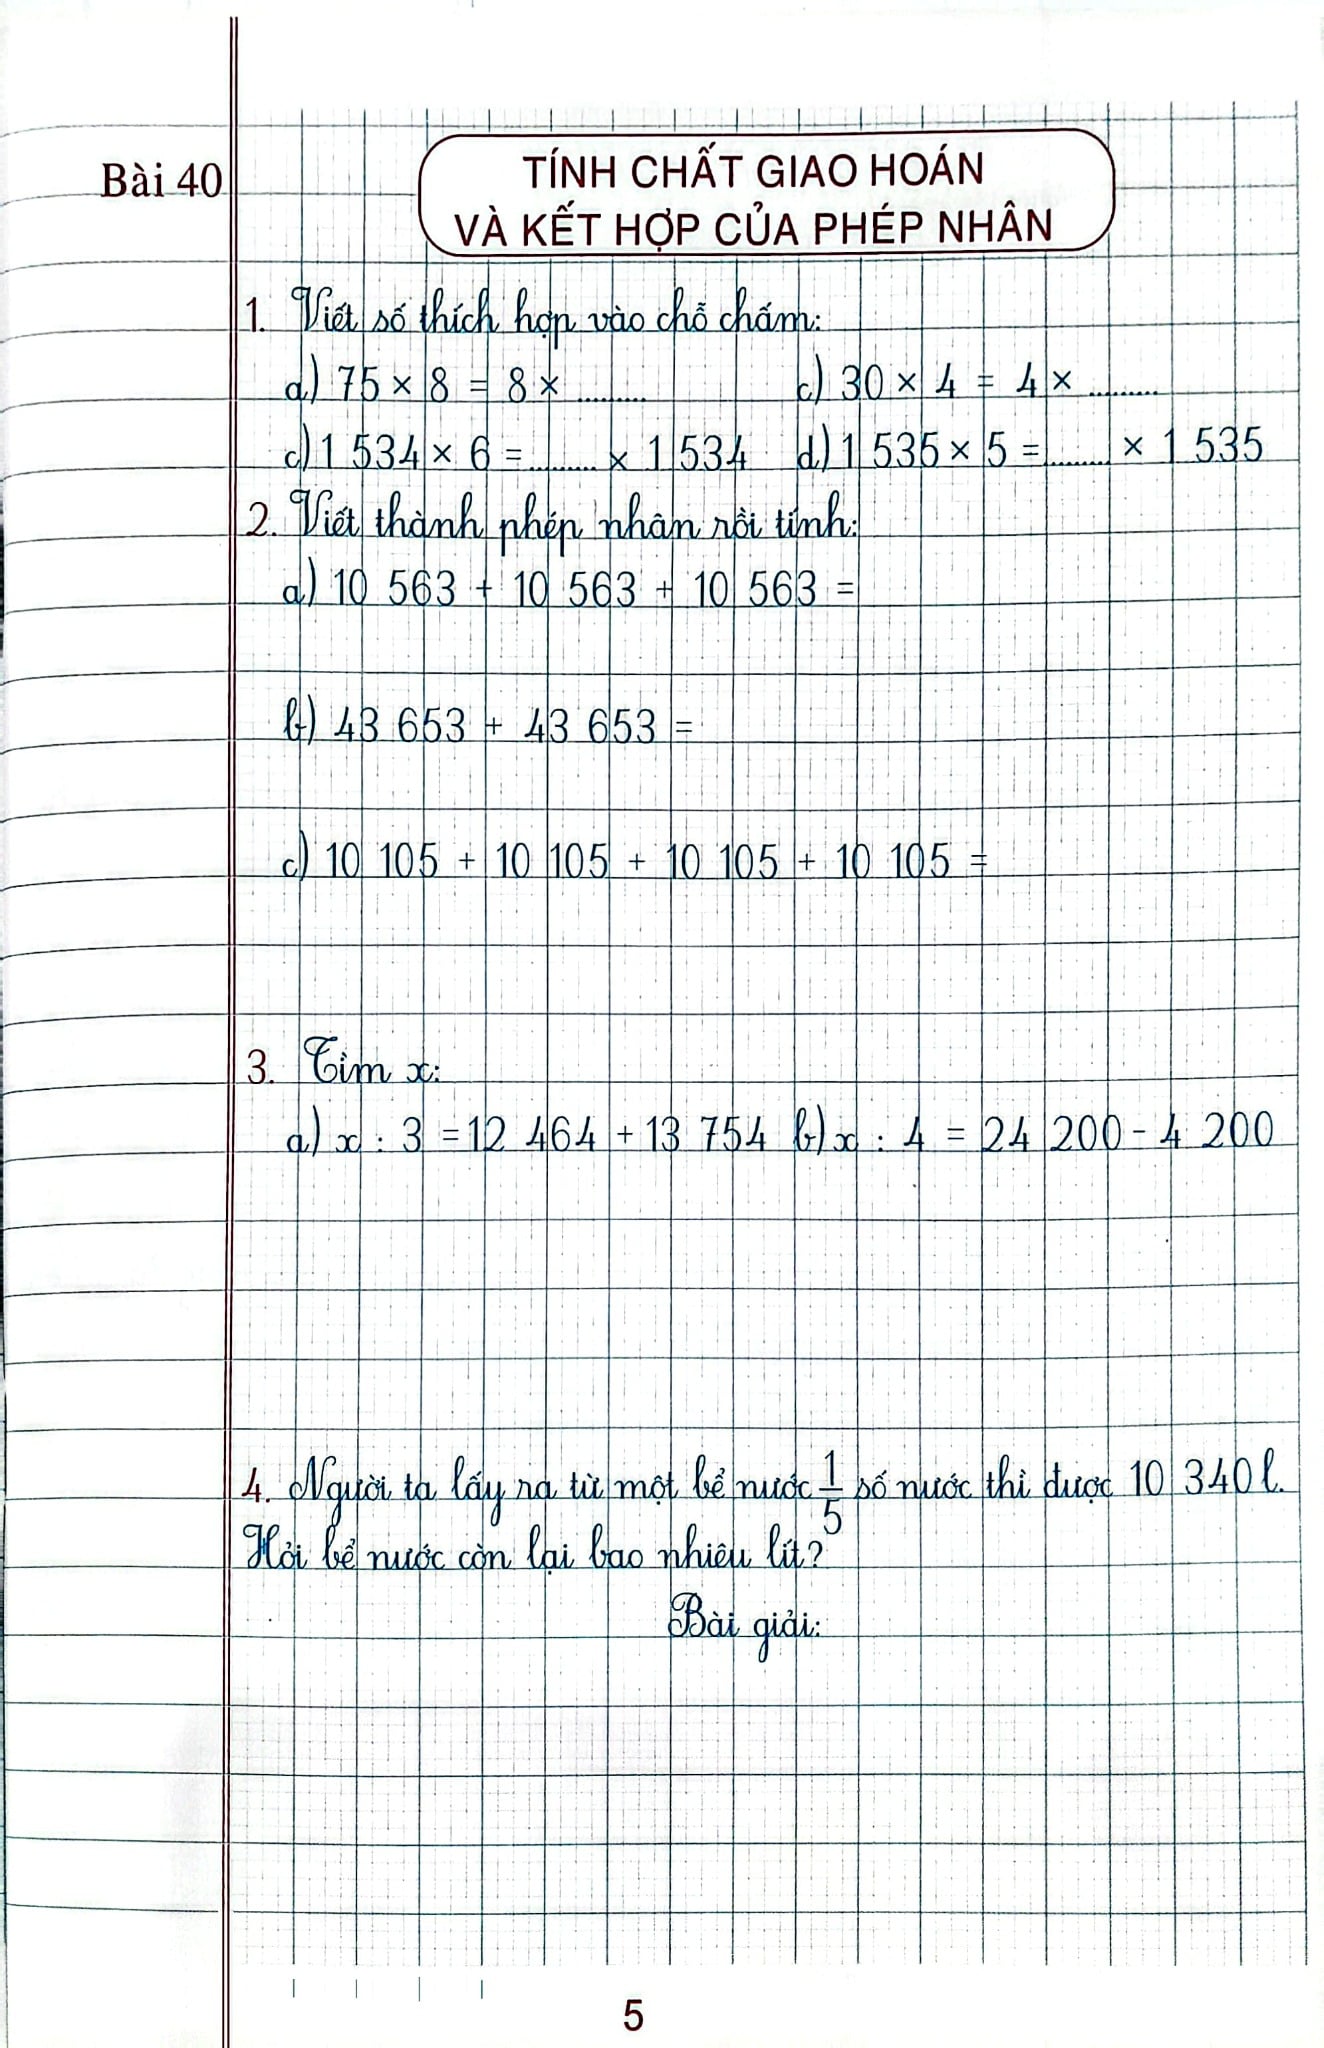 Bài 40
TÍNH CHẤT GIAO HOÁN
VÀ KẾT HỢP CỦA PHÉP NHÂN
1. Viết số thích hợp vào chỗ chấm:
a) 75 × 8 = 8 × ......... c) 30 × 4 = 4 × .........
c) 1 534 × 6 = ......... × 1 534 d) 1 535 × 5 = ......... × 1 535
2. Viết thành phép nhân rồi tính:
a) 10 563 + 10 563 + 10 563 =
b) 43 653 + 43 653 =
c) 10 105 + 10 105 + 10 105 + 10 105 =
3. Tìm x:
a) x : 3 = 12 464 + 13 754 b) x : 4 = 24 200 - 4 200
4. Người ta lấy ra từ một bể nước 1/5 số nước thì được 10 340 l.
Hỏi bể nước còn lại bao nhiêu lít?
Bài giải:
5